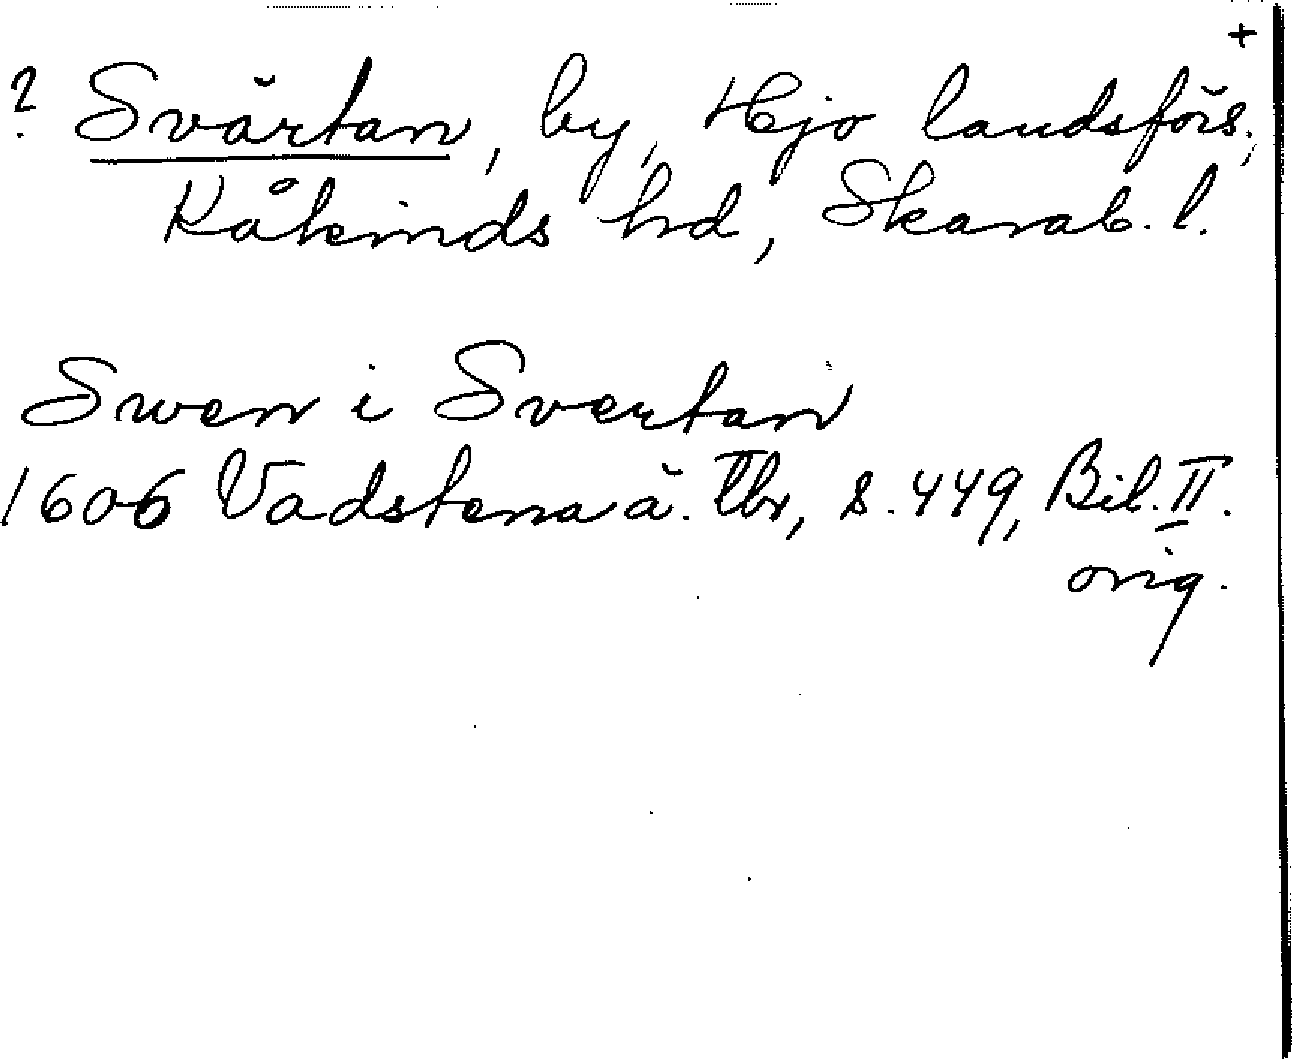 +
? Svärtan, by, Hjo landsförs.,
Kåkinds hd, Skarab. l.
Swen i Svertan
1606 Vadstena ä. Tbr, s. 449, Bil. II.
orig.